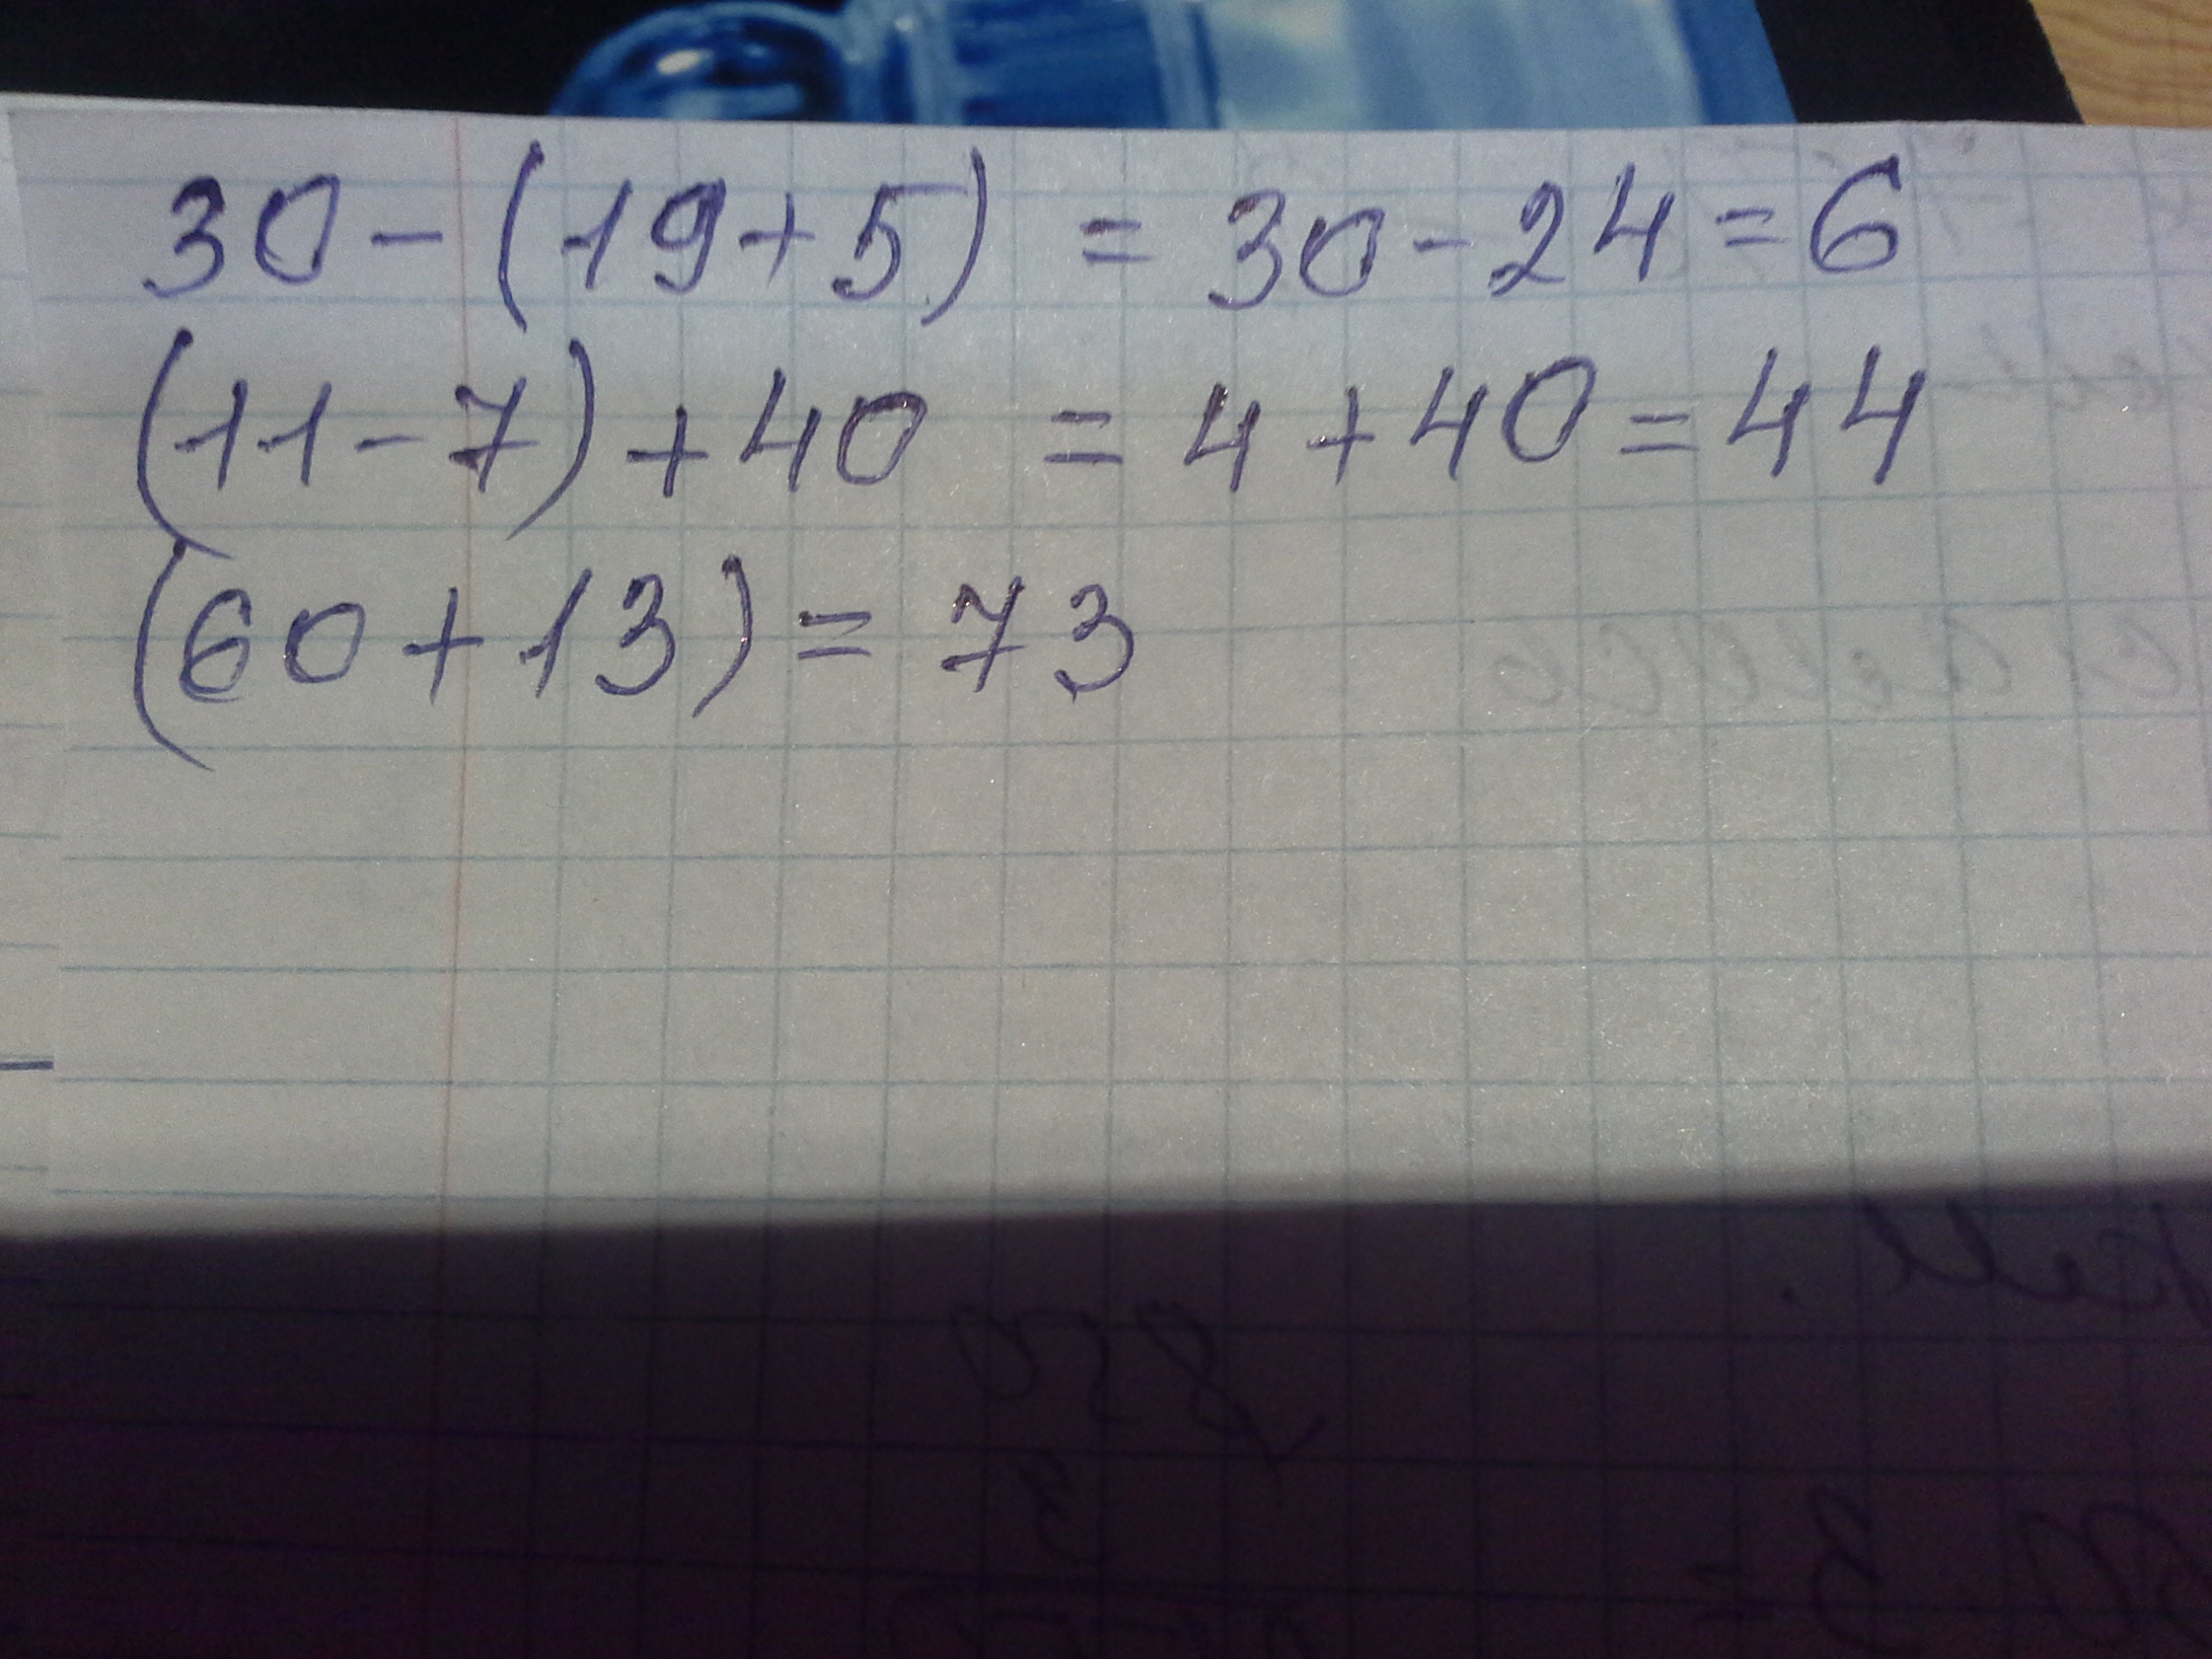 30 - (19 + 5) = 30 - 24 = 6
(11 - 7) + 40 = 4 + 40 = 44
(60 + 13) = 73